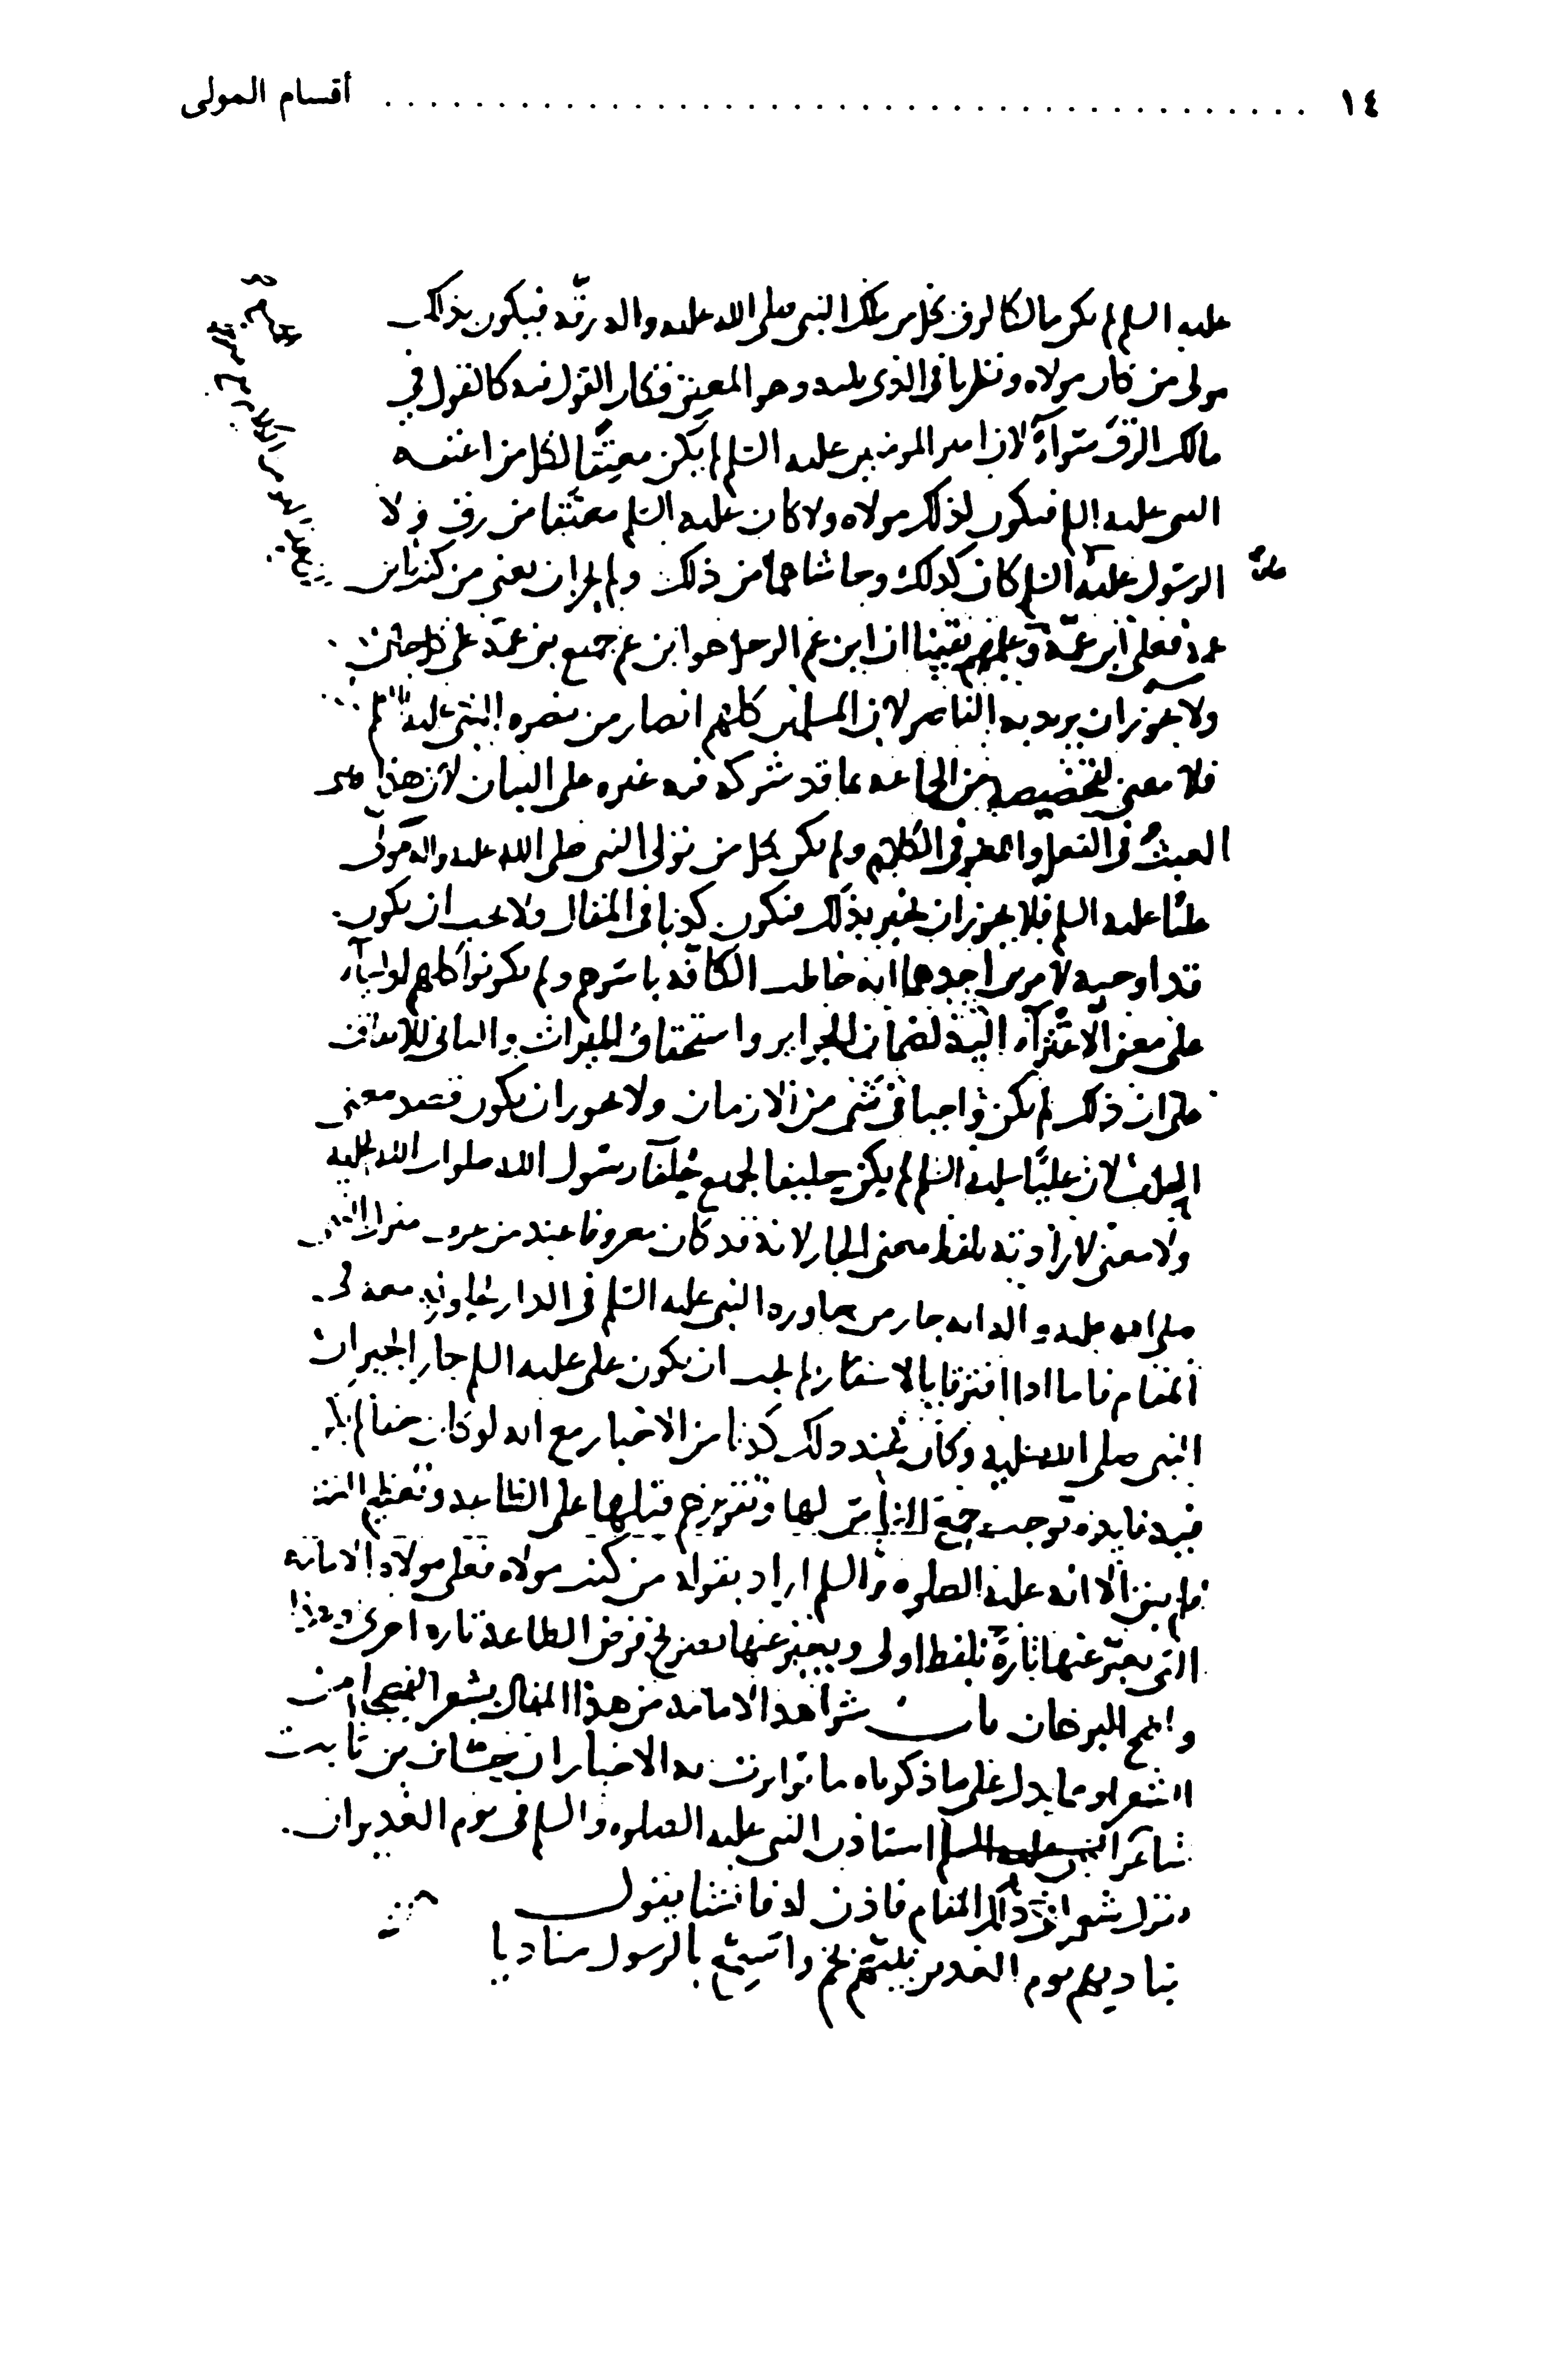 ١٤ ........................................ أقسام المولى
عليه السلم لم يكن مالكا لرق كل من ملك النبى صلى الله عليه واله رقه فيكون بذلك
مولى من كان مولاه ونظرنا فى الذى يليه وهو المعتق فكان القول فيه كالقول في
مالك الرق سوآء لان امير المومنين عليه السلم لم يكن معتقا لكل من اعتقه
النبى عليه السلم فيكون لذلك مولاه ولا كان عليه السلم معتقا من رق ولا
الرسول عليه السلم كان كذلك وحاشاهما من ذلك ولم يجز ان يعنى من كنت ابن
عمه فعلى ابن عمه وعلمهم يقينا ان ابن عم الرجل هو ابن عم جميع بنى عمه على كل حال
ولا يجوز ان يريد به الناصر لان المسلمين كلهم انصار من نصره النبى عليه السلم
فلا معنى لتخصيصه من الجماعه بما قد شركه فيه غيره على البيان لان هذا
العبث فى الفعل واللغو فى الكلام ولم يكن كل من تولى النبى صلى الله عليه واله مولى
عليا عليه السلم فلا يجوز ان يخبر بذلك فيكون كذبا فى المقال ولا يجب ان يكون
قد اوجبه لامرين احدهما انه خاطب الكافة باسرهم ولم يكونوا كلهم اوليآء
على معنى الاعتزآء اليه لضمان الجراير واستحقاق الميراث والثانى للاتفاق
على ان ذلك لم يكن واجبا فى شى من الازمان ولا يجوز ان يكون قصد معنى
الحليف لان عليا عليه السلم لم يكن حليفا لجميع حلفآء رسول الله صلوات الله عليه
ولا معنى لارادته بلفظه معنى الجار لانه قد كان معروفا عند من عرف منزل النبى
صلى الله عليه واله انه جار من جاوره النبى عليه السلم فى الدار لمجاورته معه فى
المقام فاما اذا افترقا بالاسفار لم يجب ان يكون على عليه السلم جار الجيران
النبى صلى الله عليه وكان عند ذلك كذبا من الاخبار مع انه لو كان حقا لم يكن
فيه فايدة توجب جمع الناس لها وتقريرهم قبلها على الطاعه وتعظيم
فلم يبق الا انه عليه الصلوه والسلم اراد بقوله من كنت مولاه فعلى مولاه الامامه
التى يعبر عنها تارة بلفظ اولى ويعبر عنها بمعنى فرض الطاعة تاره اخرى وهذا
واضح البرهان باب شواهد الامامه من هذا المقال بشعر الفصحا من
الشعراء مما يدل على ما ذكرناه ما تواترت به الاخبار ان حسان بن ثابت
شاعر النبى عليه السلم استاذن النبى عليه الصلوه والسلم فى يوم الغدير ان
يقول شعرا فى ذلك المقام فاذن له فانشا يقول
يناديهم يوم الغدير نبيهم بخم واسمع بالرسول مناديا